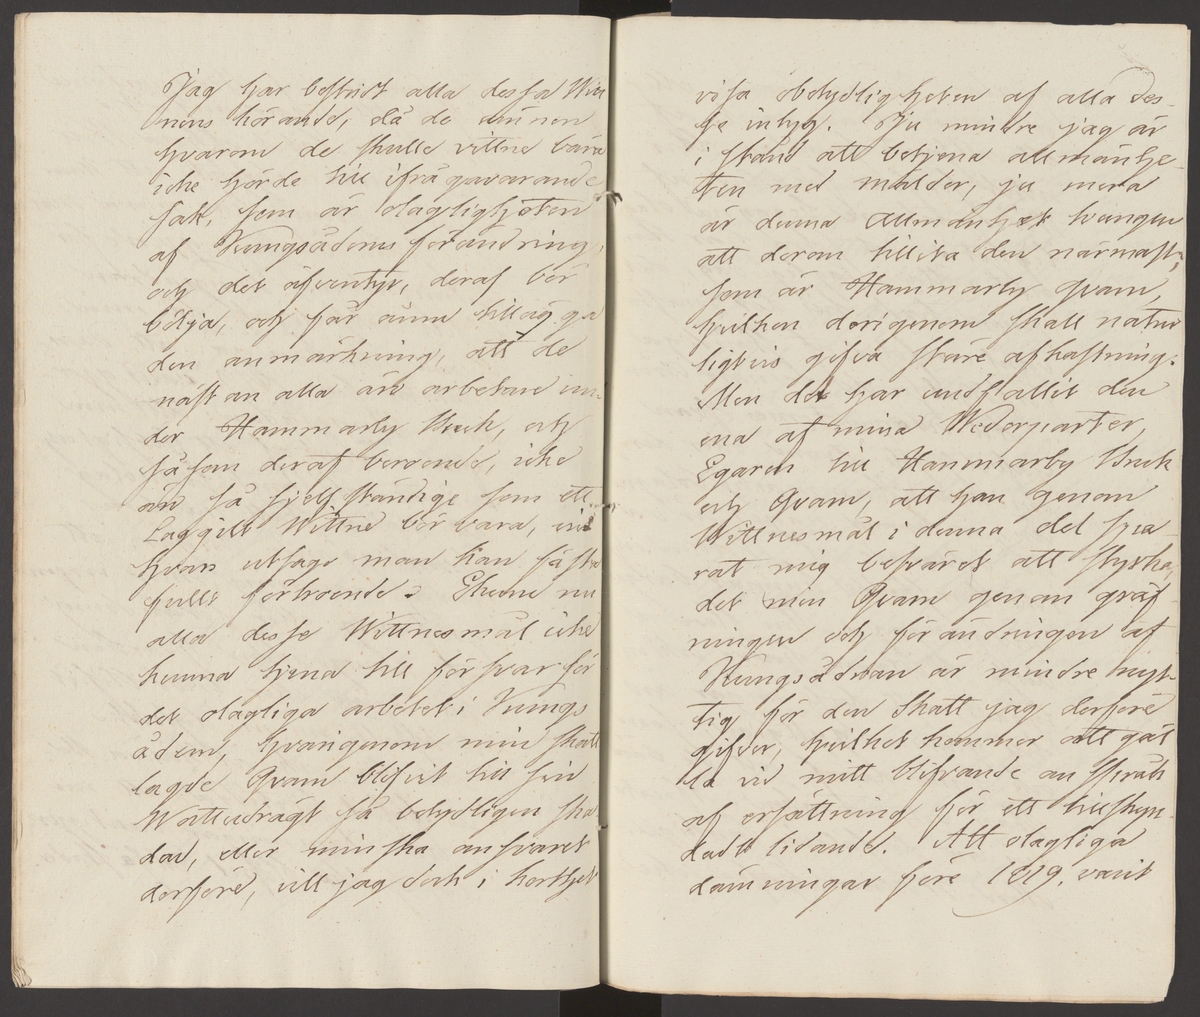 Jag har bestridt alla dessa Witt
nens hörande, då de ämnen
hvarom de skulle vittne bära
icke hörde till ifrågavarande
sak, som är olagligheten
af Kungsådrens förändring,
och det äfventyr, deraf bör
följa, och får ännu tillägga
den anmärkning, att de
nästan alla äro arbetare un-
der Hammarby Bruk, och
såsom deraf beroende, icke
än så sjelfständige som ett
Laggilt Wittne bör vara, vid
hvars utsago man kan fästa
fullt förtroende. Ehuru nu
alla desse Wittnesmål icke
kunna tjena till försvar för
det olagliga arbetet i Kungs
ådern, hvarigenom min skatt
lagde Qvarn blifvit till sin
Wattudrägt så betydligen ska
dad, eller minska ansvaret
derföre, vill jag dock i korthet
visa obetydligheten af alla des-
se intyg. Ju mindre jag är
i stånd att betjena allmänhe-
ten med mälder, ju mera
är denna Allmänhet tvungen
att dermed tillita den närmaste,
som är Hammarby Qvarn,
hvilken derigenom skall natur
ligtvis gifva större afkastning.
Men det har undfallit den
ena af mina Wederparter,
Egaren till Hammarby Bruk
och Qvarn, att han genom
Wittnesmål i denna del spa
rat mig besväret att styrka,
det min Qvarn genom gräf-
ningen och förändringen af
Kungsådran är mindre nyt-
tig för den Skatt jag derföre
gifver, hvilket kommer att gäl
la vid mitt blifvande anspråk
af ersättning för ett tillskyn-
dadt lidande. Att olagliga
dämningar före 1819. varit